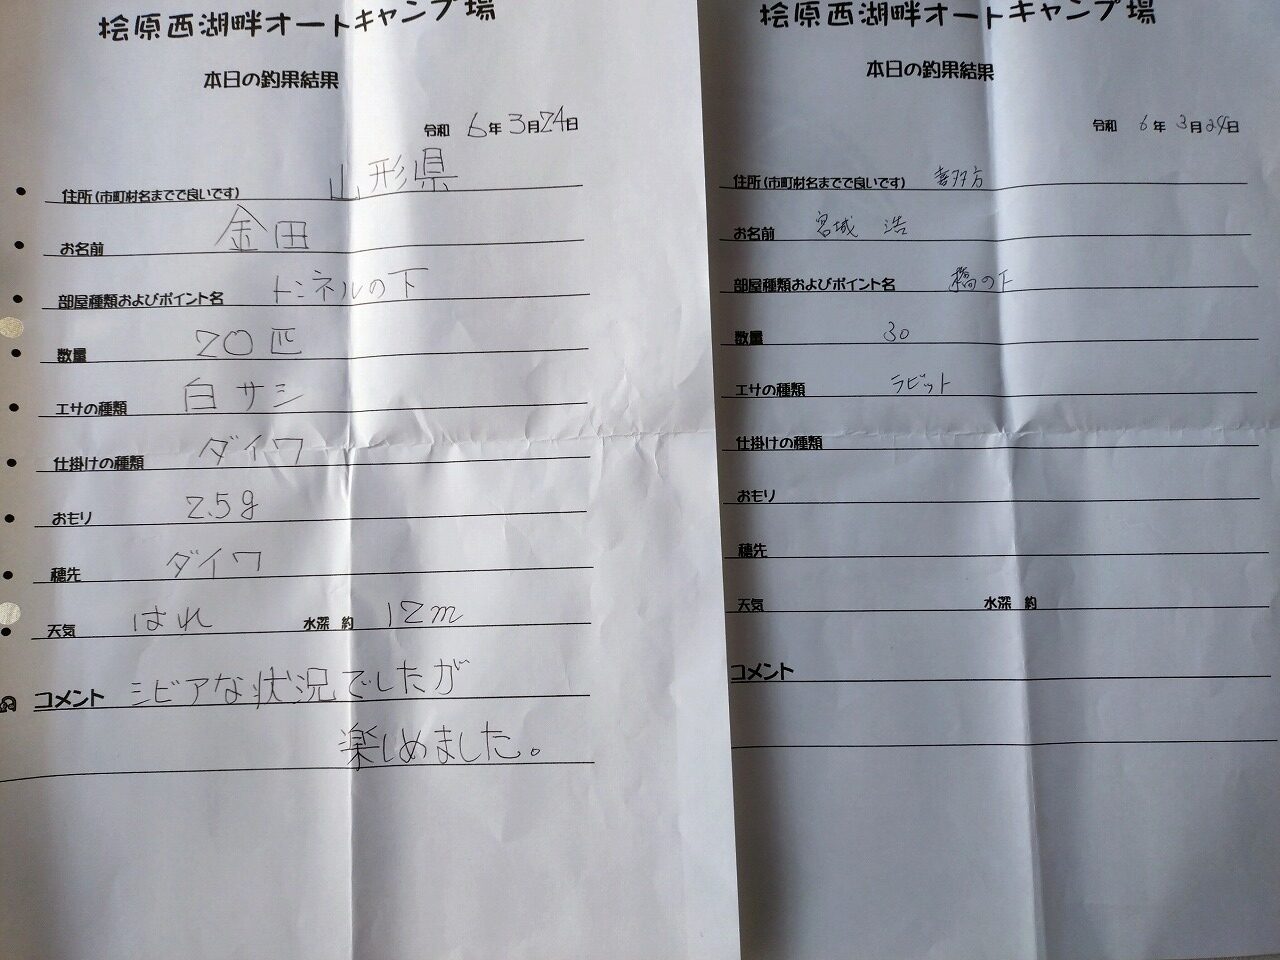 桧原西湖畔オートキャンプ場
本日の釣果結果
令和 6年3月24日
住所(市町村名までで良いです) 山形県
お名前 金田
部屋種類およびポイント名 トンネルの下
数量 20匹
エサの種類 白サシ
仕掛けの種類 ダイワ
おもり 2.5g
穂先 ダイワ
天気 はれ 水深 約 12m
コメント シビアな状況でしたが
楽しめました。
桧原西湖畔オートキャンプ場
本日の釣果結果
令和 6年3月24日
住所(市町村名までで良いです) 喜多方
お名前 宮城 浩
部屋種類およびポイント名 橋の下
数量 30
エサの種類 ラビット
仕掛けの種類
おもり
穂先
天気 水深 約
コメント